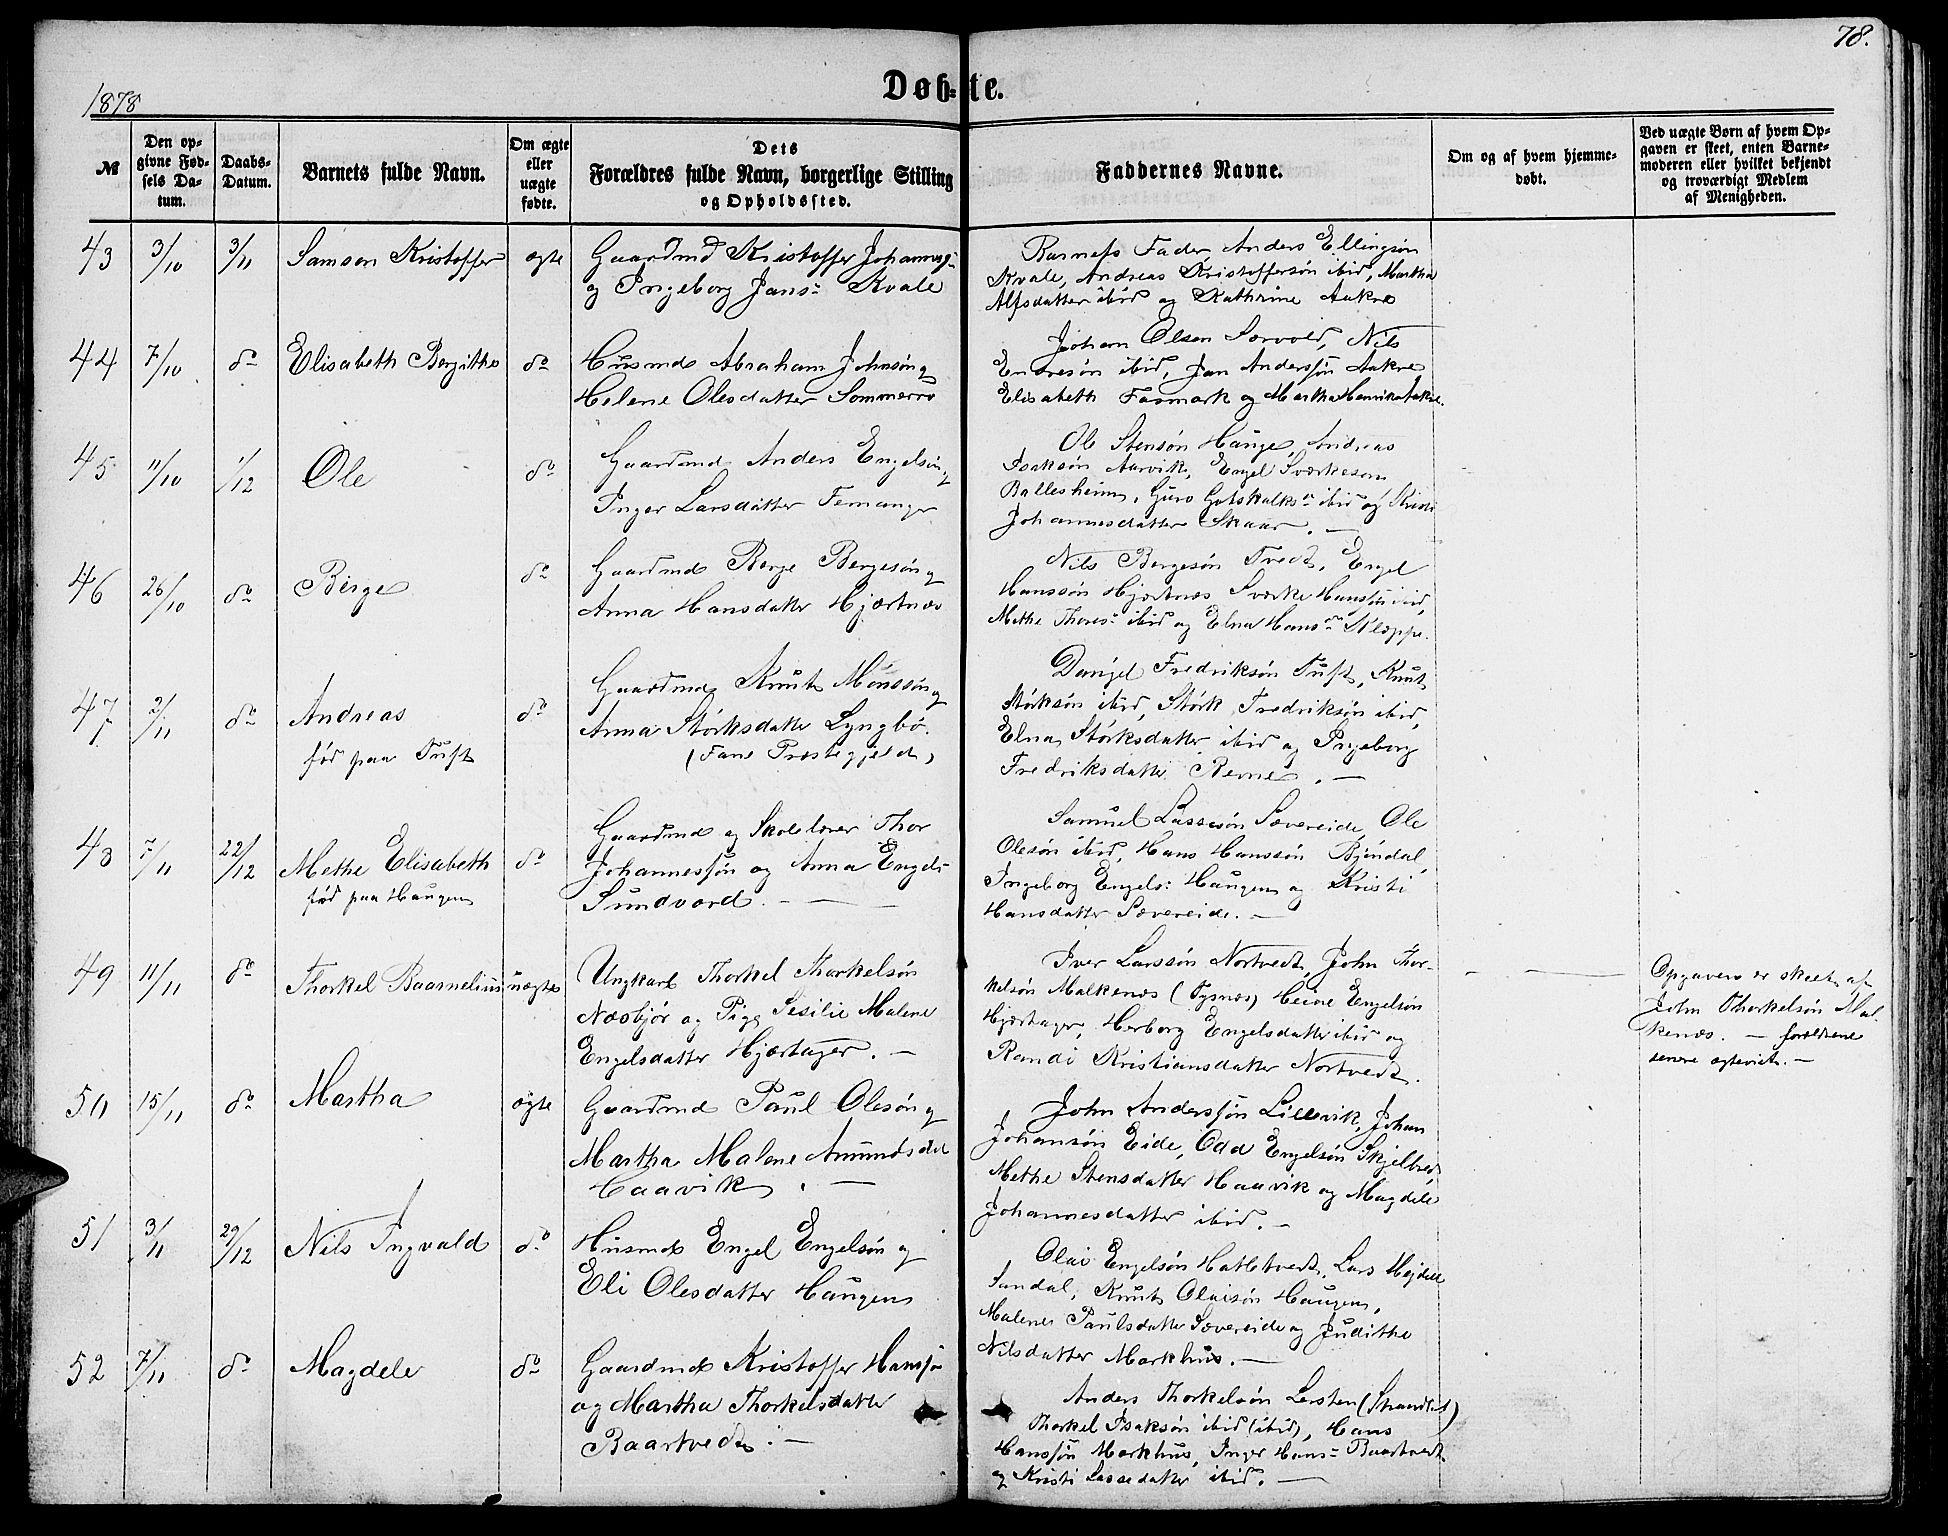 78.
Døbte.
1878
№
Den opgivne Fødsels Datum.
Daabs-Datum.
Barnets fulde Navn.
Om ægte eller uægte fødte.
Dets Forældres fulde Navn, borgerlige Stilling og Opholdssted.
Faddernes Navne.
Om og af hvem hjemmedøbt.
Ved uægte Børn af hvem Opgaven er skeet, enten Barnemoderen eller hvilket bekjendt og troværdigt Medlem af Menigheden.
43 3/10 3/11 Samson Kristoffer ægte
Gaardmd Kristoffer Johannes-
og Ingeborg Jans- Kvale
Barnets Fader, Anders Ellingsøn
Kvale, Andreas Kristoffersøn ibid, Martha
Alfsdatter ibid og Kathrine Aakre
44 7/10 do Elisabeth Bergithe do
Husmd Abraham Johnsøn og
Helene Olesdatter Sommerro
Johan Olsen Sørvold, Nils
Endresøn ibid, Jan Anderssøn Aakre
Elisabeth Fosmark og Martha Henrika Aakre.
45 11/10 1/12 Ole do
Gaardmd Anders Engelsøn og
Inger Larsdatter Femanger
Ole Stensøn Hauge, Andreas
Isaksøn Aarvik, Engel Sværkesøn
Ballesheim, Guro Gotskalksdr ibid og Kristi
Johannesdatter Skaar. —
46 26/10 do Børge do
Gaardmd Børge Børgesøn og
Anna Hansdatter Hjartnæs
Nils Børgesøn Tvedt, Engel
Hanssøn Hjartnæs Sværke Hanssøn ibid,
Methe Thores- ibid og Elna Hansdr Kleppe.
47 2/11 do Andreas do
fød paa Tuft
Gaardmd Knut Monssøn og
Anna Størksdatter Lyngbø.
(Fane Præstegjeld)
Daniel Fredriksøn Tuft, Knut
Størksøn ibid, Størk Fredriksøn ibid,
Elna Størksdatter ibid og Ingeborg
Fredriksdatter Revne. —
48 7/11 22/12 Methe Elisabeth do
fød paa Haugen
Gaardmd og Skolelærer Thor
Johannessøn og Anna Engels-
Sundvord. — —
Samuel Lassesøn Sævereide, Ole
Olesøn ibid, Hans Hanssøn Bjøndal,
Ingeborg Engels: Haugen og Kristi
Hansdatter Sævereide. —
49 11/11 do Thorkel Baarnelius uægte
Ungkarl Thorkel Thorkelsøn
Næsbjør og Pige Sesilie Malene
Engelsdatter Hjærtager. —
Iver Larssøn Nortvedt, John Thor-
kelsøn Malkenæs (Tysnæs) Heine Engelsøn
Hjærtager, Herborg Engelsdatter ibid og
Randi Kristiansdatter Nortvedt.
— — —
Opgaven er skeet af
John Thorkelsøn Mal-
kenæs. — forældrene
senere egteviet. —
50 15/11 do Martha ægte
Gaardmd Paul Olesøn og
Martha Malene Amundsdat
Haavik. —
John Anderssøn Lillevik, Johan
Johansøn Eide, Odd Engelsøn Skjelbred
Methe Stensdatter Haavik og Magdele
Johannesdatter ibid. —
51 3/11 29/12 Nils Ingvald do
Husmd Engel Engelsøn og
Eli Olesdatter Haugen
Olai Engelsøn Hatletvedt, Lars Mejdell
Sandal, Knut Olaisøn Haugen,
Malene Paulsdatter Sævereide og Judithe
Nilsdatter Markhus. —
52 7/11 do Magdele do
Gaardmd Kristoffer Hanssø-
og Martha Thorkelsdatter
Baartvedt. —
Anders Thorkelsøn Lersten (Strandvik)
Thorkel Isaksøn ibid (ibid), Hans
Hanssøn Markhus, Inger Hans- Baartvedt
og Kristi Lassedatter ibid. —